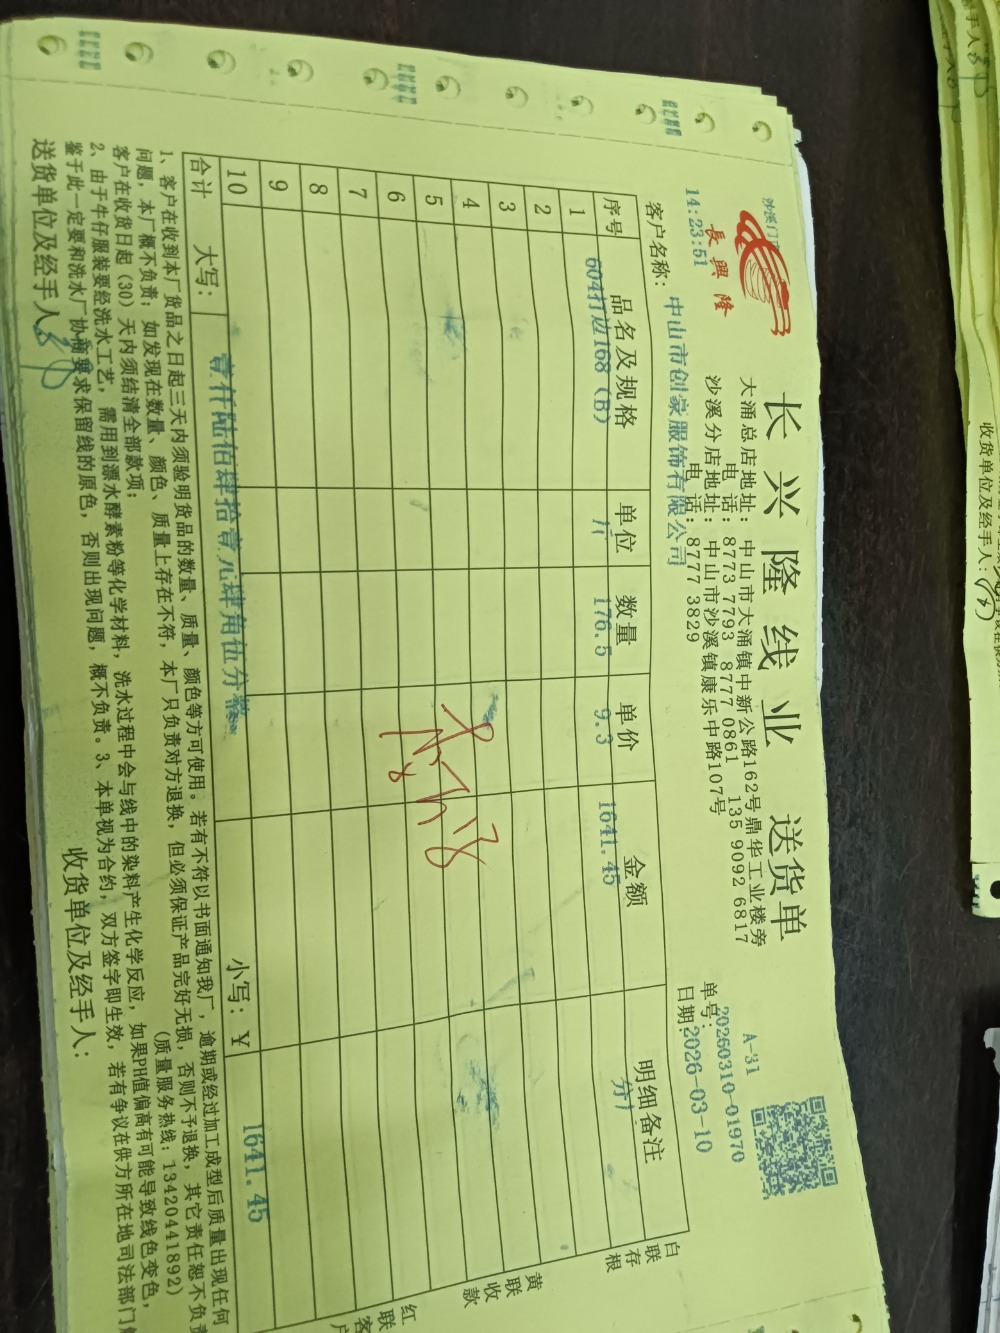 長興隆
长兴隆线业 送货单
大涌总店地址：中山市大涌镇中新公路162号鼎华工业楼旁
电 话：8773 7793 8777 0861 135 9092 6817
沙溪分店地址：中山市沙溪镇康乐中路107号
电 话：8777 3829
A-31
单号：20260310-01970
日期：2026-03-10
14:23:51
客户名称：中山市创豪服饰有限公司
序号 品名及规格 单位 数量 单价 金额 明细备注
1 604打边168（B） 斤 176.5 9.3 1641.45
2
3
4
5
6
7
8
9
10
合计 大写：壹仟陆佰肆拾壹元肆角伍分整 小写：￥ 1641.45
1、客户在收到本厂货品之日起三天内须验明货品的数量、质量、颜色等方可使用。若有不符以书面通知我厂，逾期或经过加工成型后质量出现任何
问题，本厂概不负责；如发现在数量、颜色、质量上存在不符，本厂只负责对方退换，但必须保证产品完好无损，否则不予退换，其它责任恕不负责
客户在收货日起（30）天内须结清全部款项； （质量服务热线：13420441892）
2、由于牛仔服装要经洗水工艺，需用到漂水酵素粉等化学材料，洗水过程中会与线中的染料产生化学反应，如果PH值偏高有可能导致线色变色，
鉴于此一定要和洗水厂协商要求保留线的原色，否则出现问题，概不负责。3、本单视为合约，双方签字即生效，若有争议在供方所在地司法部门
送货单位及经手人： 收货单位及经手人：
白联存根
黄联收款
红联客户
收货单位及经手人：